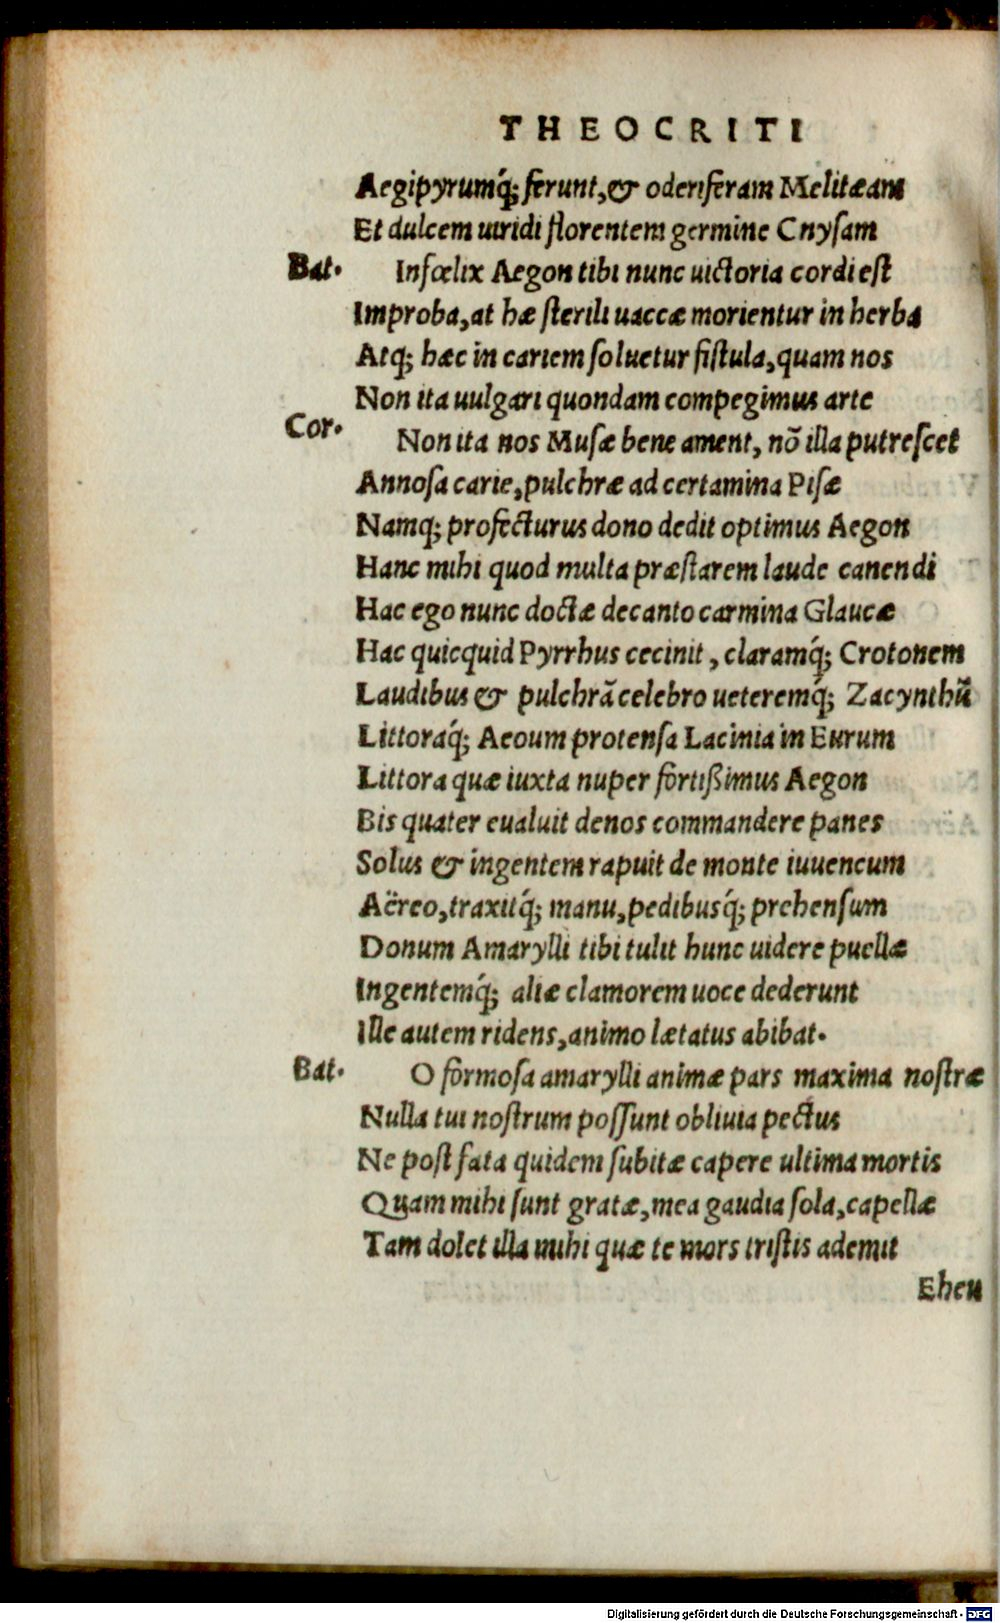 THEOCRITI
Aegipyrumq́; ferunt,& odenferam Melitæam
Et dulcem uiridi florentem germine Cnysam
Bat. Infœlix Aegon tibi nunc uictoria cordi est
Improba, at hæ sterili uaccæ morientur in herba
Atq; hæc in cariem soluetur fistula, quam nos
Non ita uulgari quondam compegimus arte
Cor. Non ita nos Musæ bene ament, nõ illa putrescet
Annosa carie, pulchræ ad certamina Pisæ
Namq; profecturus dono dedit optimus Aegon
Hanc mihi quod multa præstarem laude canendi
Hac ego nunc doctæ decanto carmina Glaucæ
Hac quicquid Pyrrhus cecinit, claramq́; Crotonem
Laudibus & pulchrã celebro ueteremq́; Zacynthũ
Littoraq́; Aeoum protensa Lacinia in Eurum
Littora quæ iuxta nuper fortißimus Aegon
Bis quater eualuit denos commandere panes
Solus & ingentem rapuit de monte iuuencum
Aëreo, traxitq́; manu, pedibusq́; prehensum
Donum Amarylli tibi tulit hunc uidere puellæ
Ingentemq́; aliæ clamorem uoce dederunt
Ille autem ridens, animo lætatus abibat.
Bat. O formosa amarylli animæ pars maxima nostræ
Nulla tui nostrum possunt obliuia pectus
Ne post fata quidem subitæ capere ultima mortis
Quam mihi sunt gratæ, mea gaudia sola, capellæ
Tam dolet illa mihi quæ te mors tristis ademit
Eheu
Digitalisierung gefördert durch die Deutsche Forschungsgemeinschaft - DFG